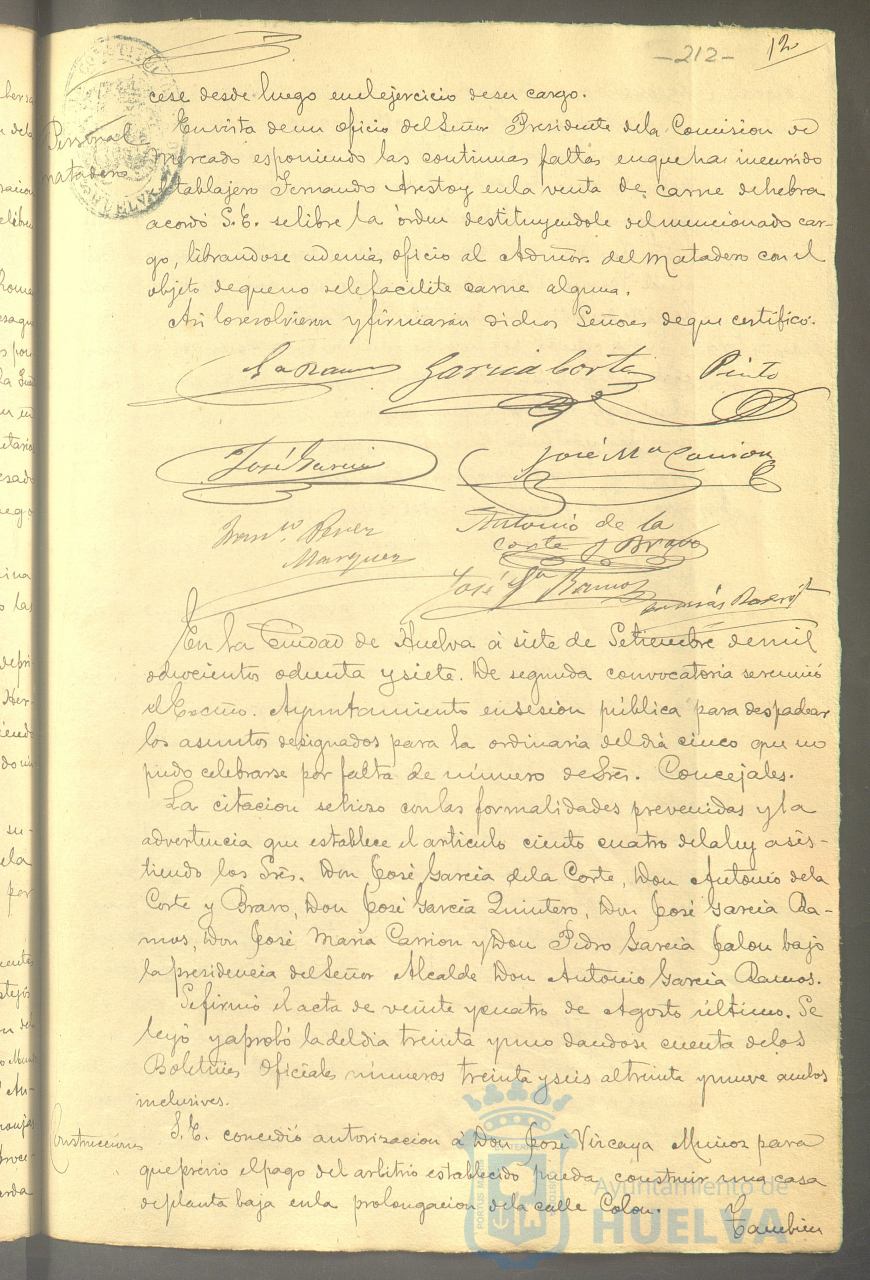 -212-
12
cese desde luego enelejercicio desu cargo.
Personal
matadero
Envista deun oficio delSeñor Presidente dela Comision de
Mercado esponiendo las continuas faltas enqueha incurrido
el tablajero Fernando Arestoy enla venta de carne dehebra
acordó S.E. selibre la órden destituyendole delmencionado car-
go, librandose además oficio al Admor. del Matadero con el
objeto dequeno selefacilite carne alguna.
Asi loresolvieron yfirmaran dichos Señores deque certifico.
Ga Ramos García Corte Pinto
José Garcia
José Mª Carrion
Franco. Perez
Marquez
Antonio de la
Corte y Bravo
José Gª Ramos
En la Ciudad de Huelva á siete de Setiembre demil
ochocientos ochenta ysiete. De segunda convocatoria sereunió
el Excmo. Ayuntamiento ensesion pública para despachar
los asuntos designados para la ordinaria deldia cinco que no
pudo celebrarse por falta de número deSres. Concejales.
La citacion sehizo conlas formalidades prevenidas yla
advertencia que establece el articulo ciento cuatro delaley asis-
tiendo los Sres. Don José García dela Corte, Don Antonio dela
Corte y Bravo, Don José García Quintero, Don José García Ra-
mos, Don José María Carrion y Don Pedro García Jalon bajo
la presidencia delSeñor Alcalde Don Antonio García Ramos.
Sefirmó el acta de veinte ycuatro de Agosto último. Se
leyó yaprobó la deldia treinta yuno dandose cuenta delos
Boletines Oficiales números treinta yseis altreinta ynueve ambos
inclusives.
Construcciones
S.E. concedió autorizacion á Don José Vizcaya Muñoz para
queprévio elpago del arbitrio establecido pueda construir una casa
deplanta baja enla prolongacion dela calle Colon.
Tambien
Ayuntamiento de
HUELVA